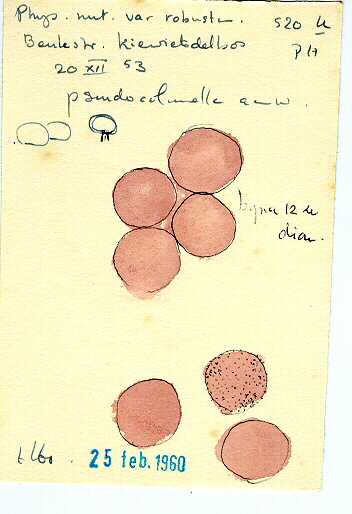 Phys. nut. var robusta. 520 u
Beukestr. Kievietsdelbos P14
20 XII 53
pseudocolumella aanw.
bijna 12 u
diam.
t 160.
25 feb. 1960